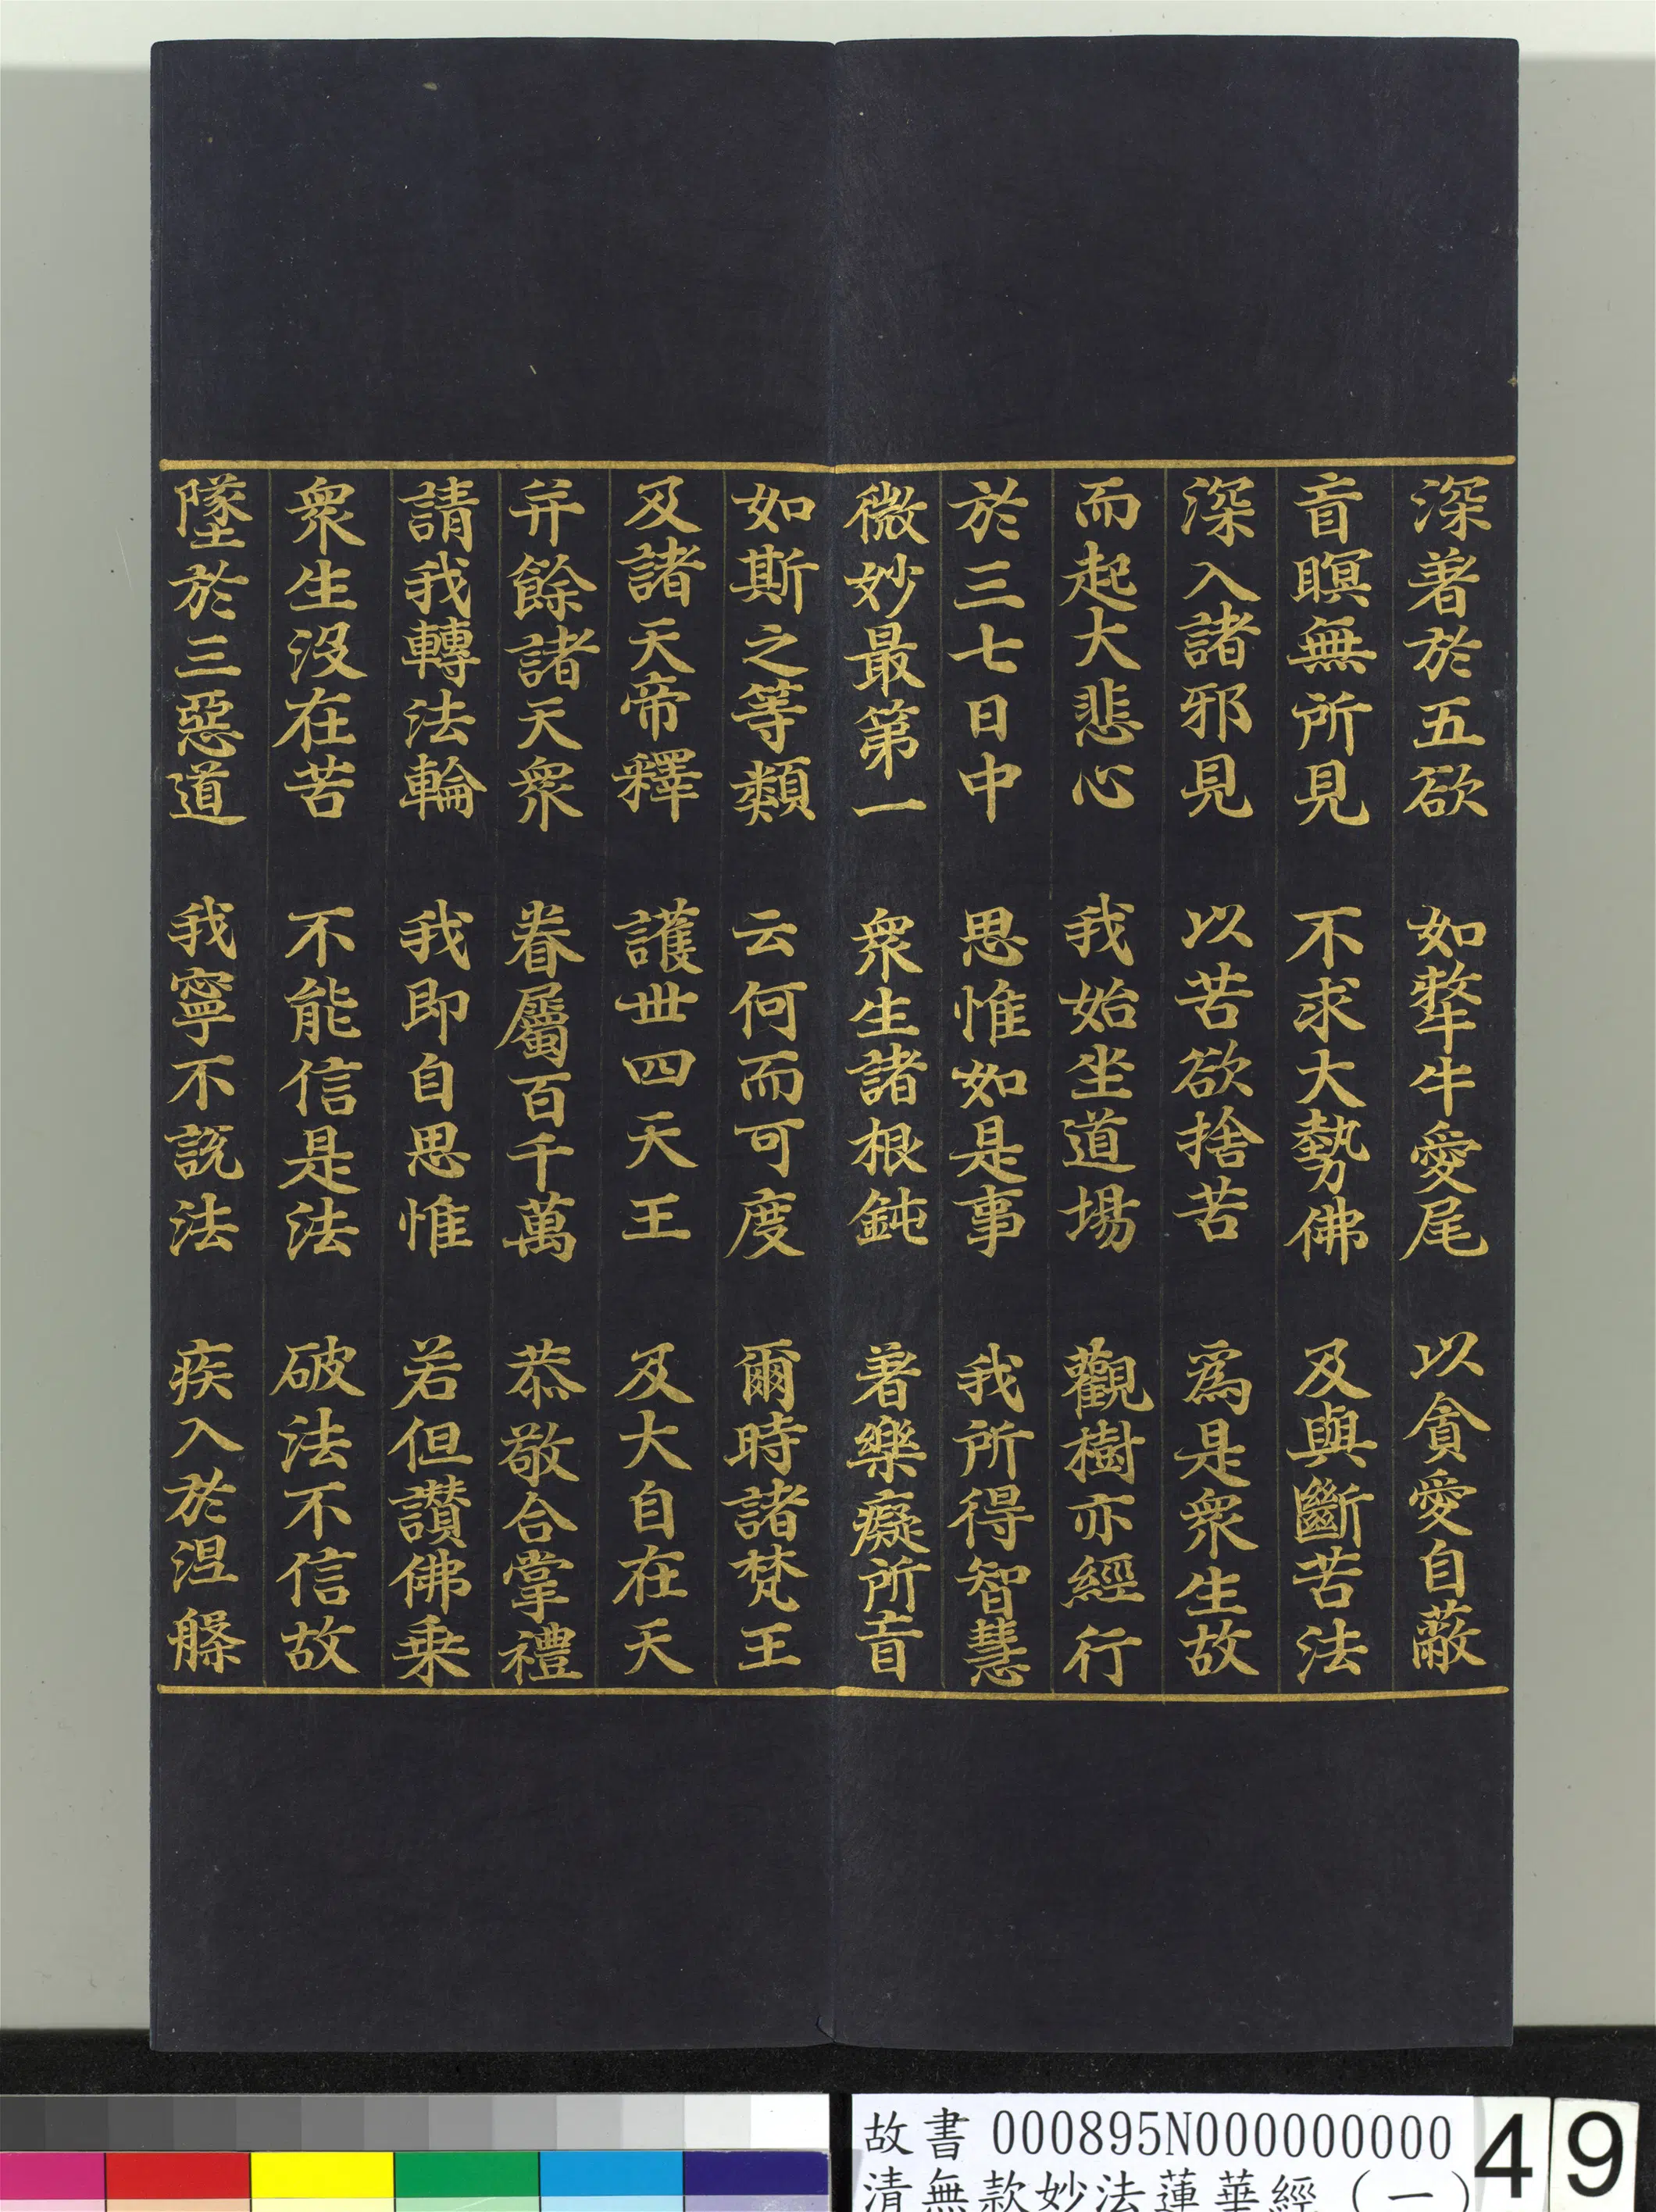 深著於五欲 如犛牛愛尾 以貪愛自蔽
盲瞑無所見 不求大勢佛 及與斷苦法
深入諸邪見 以苦欲捨苦 為是衆生故
而起大悲心 我始坐道場 觀樹亦經行
於三七日中 思惟如是事 我所得智慧
微妙最第一 衆生諸根鈍 著樂癡所盲
如斯之等類 云何而可度 爾時諸梵王
及諸天帝釋 護世四天王 及大自在天
并餘諸天衆 眷屬百千萬 恭敬合掌禮
請我轉法輪 我即自思惟 若但讚佛乗
衆生沒在苦 不能信是法 破法不信故
墜於三惡道 我寧不說法 疾入於涅槃
故書 000895N000000000
清無款妙法蓮華經(一)
49